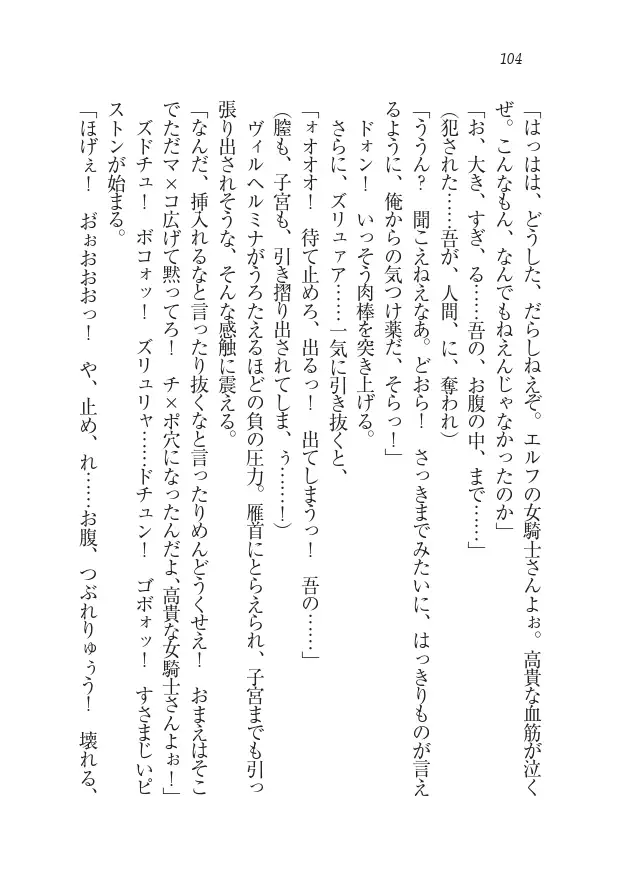 104
「はっはは、どうした、だらしねえぞ。エルフの女騎士さんよぉ。高貴な血筋が泣く
ぜ。こんなもん、なんでもねえんじゃなかったのか」
「お、大き、すぎ、る……吾の、お腹の中、まで……」
(犯された……吾が、人間、に、奪われ)
「ううん?　聞こえねえなあ。どおら!　さっきまでみたいに、はっきりものが言え
るように、俺からの気つけ薬だ、そらっ!」
ドォン!　いっそう肉棒を突き上げる。
さらに、ズリュァア……一気に引き抜くと、
「ォオオオ!　待て止めろ、出るっ!　出てしまうっ!　吾の……」
(膣も、子宮も、引き摺り出されてしま、ぅ……!)
ヴィルヘルミナがうろたえるほどの負の圧力。雁首にとらえられ、子宮までも引っ
張り出されそうな、そんな感触に震える。
「なんだ、挿入れるなと言ったり抜くなと言ったりめんどうくせえ!　おまえはそこ
でただマ×コ広げて黙ってろ!　チ×ポ穴になったんだよ、高貴な女騎士さんよぉ!」
ズドチュ!　ボコォッ!　ズリュリャ……ドチュン!　ゴボォッ!　すさまじいピ
ストンが始まる。
「ほげぇ!　お゛ぉおおおっ!　や、止め、れ……お腹、つぶれりゅぅう!　壊れる、